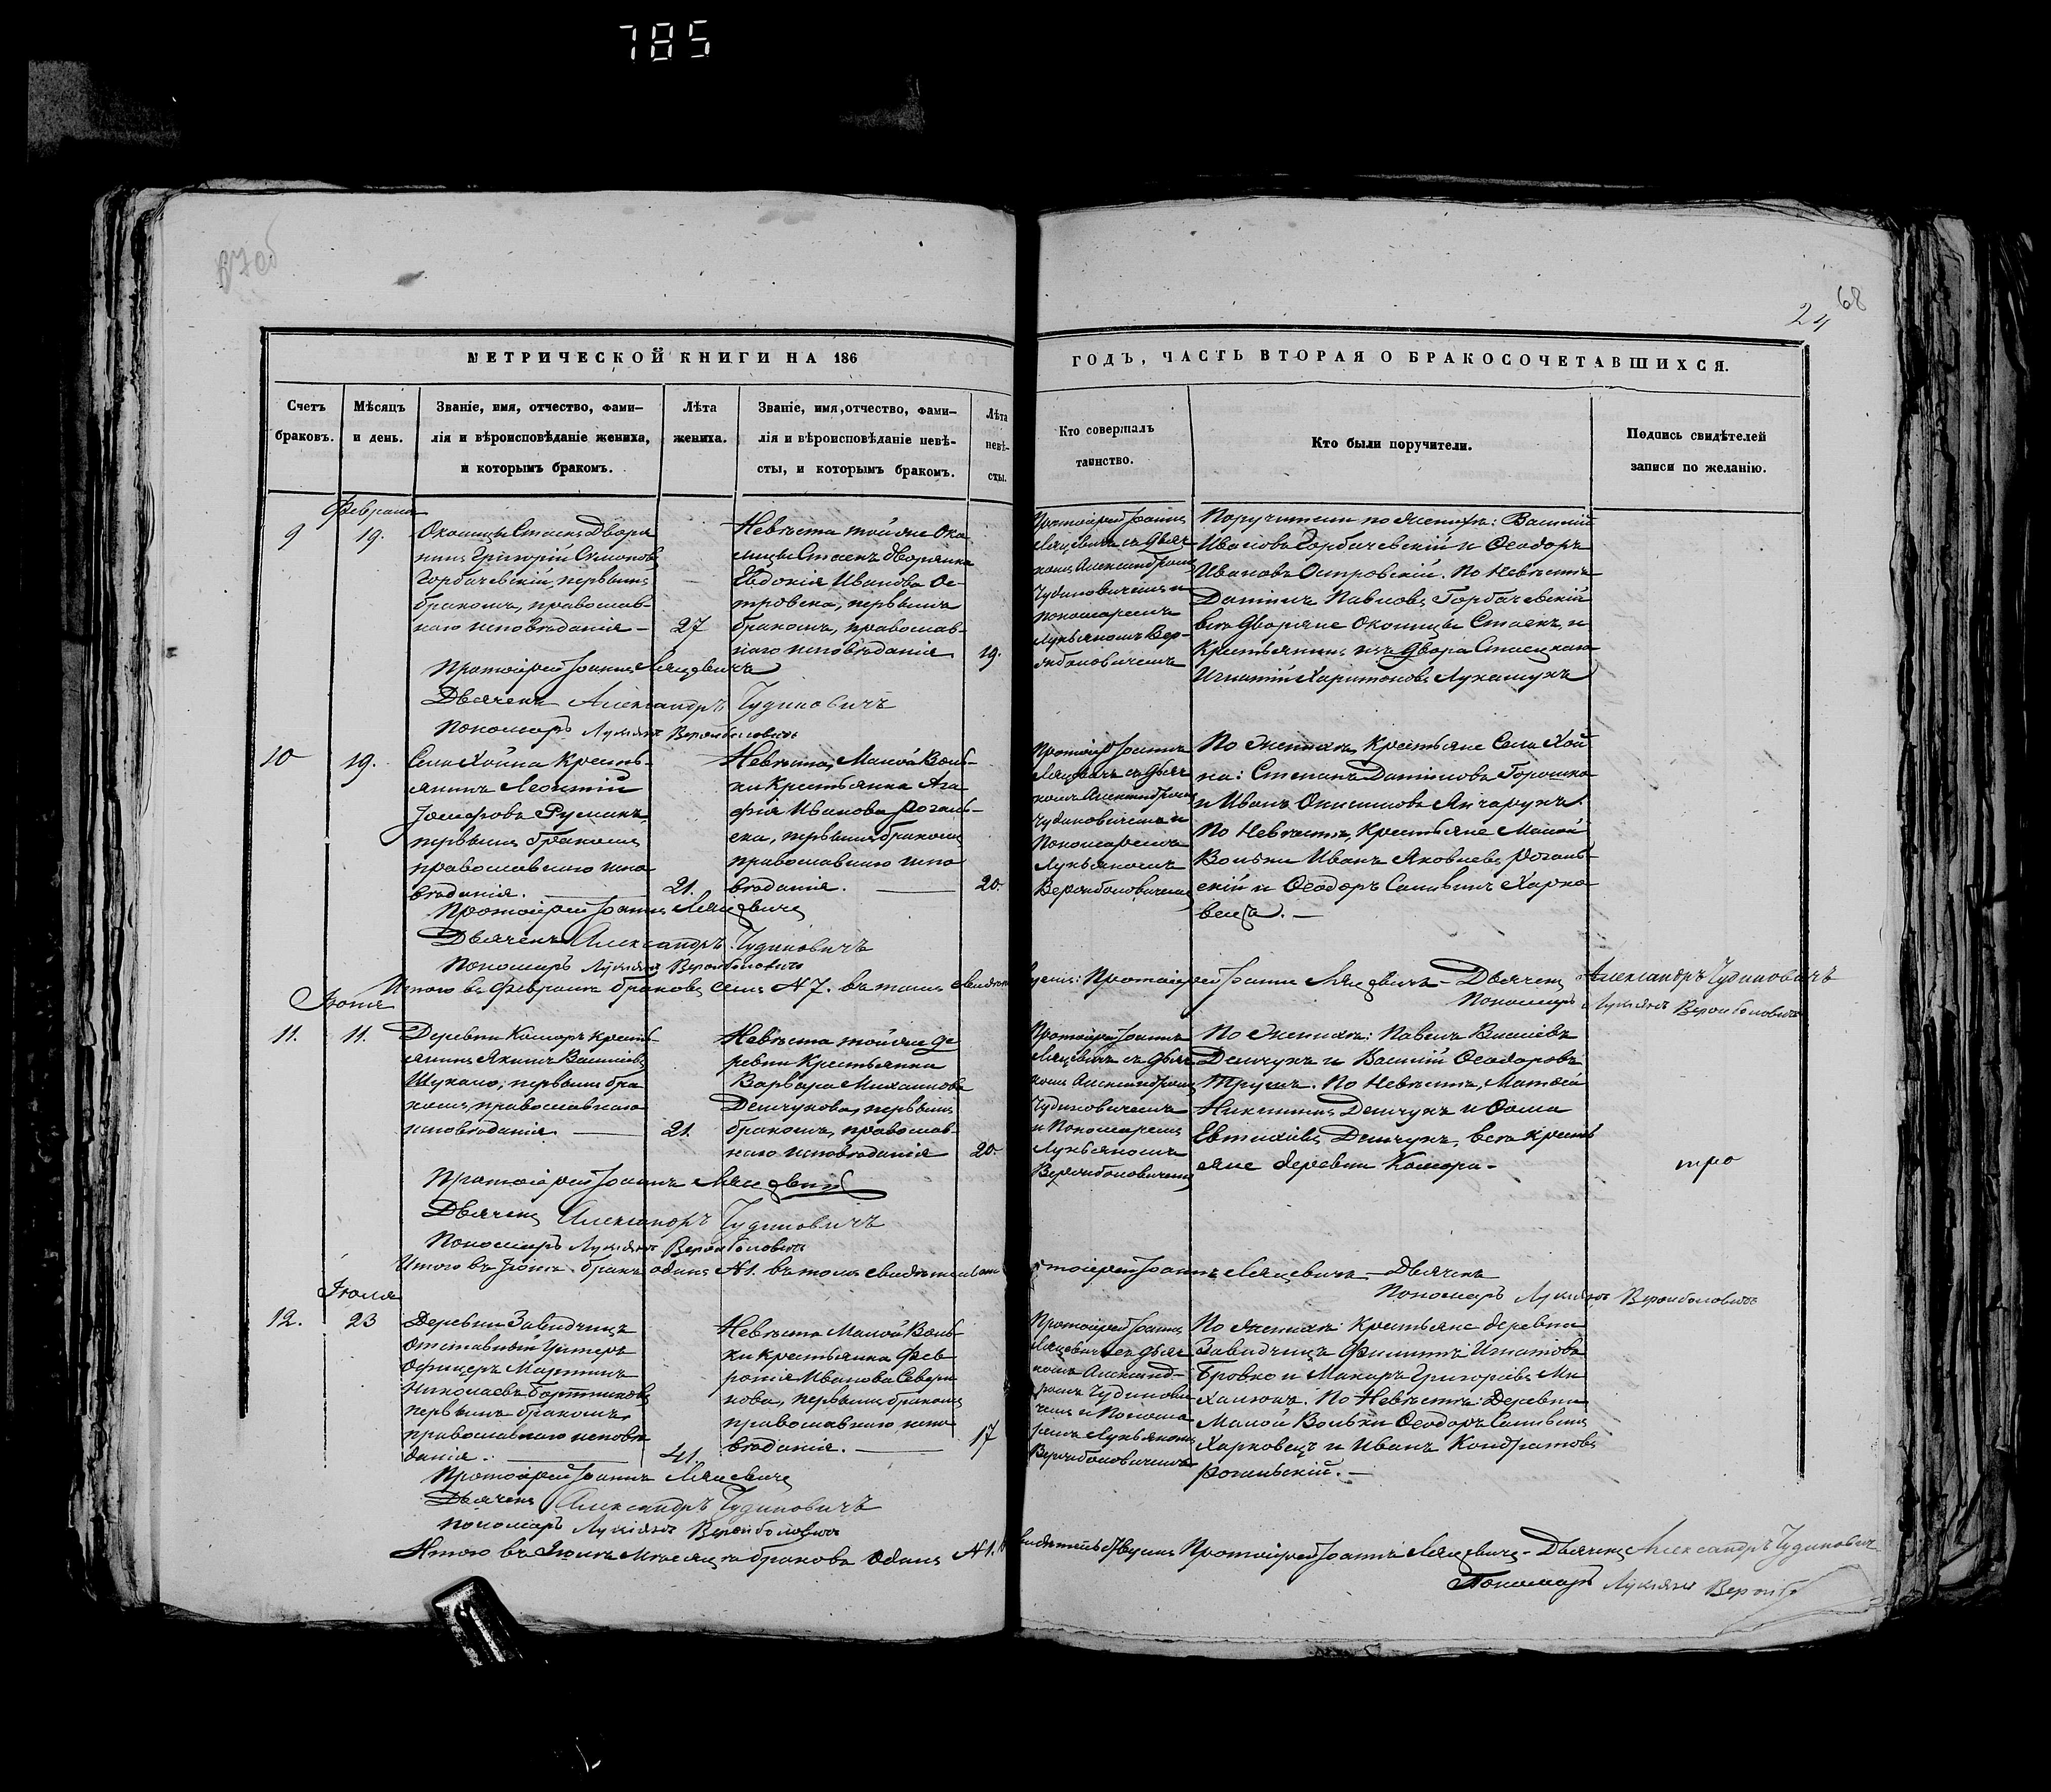 785
67об
68
24
МЕТРИЧЕСКОЙ КНИГИ НА 186
ГОДЪ, ЧАСТЬ ВТОРАЯ О БРАКОСОЧЕТАВШИХСЯ.
Счетъ браковъ.
Мѣсяцъ и день.
Званіе, имя, отчество, фами-
лія и вѣроисповѣданіе жениха,
и которымъ бракомъ.
Лѣта
жениха.
Званіе, имя, отчество, фами-
лія и вѣроисповѣданіе невѣ-
сты, и которымъ бракомъ.
Лѣта
невѣ-
сты.
Кто совершалъ
таинство.
Кто были поручители.
Подпись свидѣтелей
записи по желанію.
Февраля
9
19.
Околицы Стаекъ Дворя
нинъ Григорій Симоновъ
Горбачевскій, первымъ
бракомъ, православ-
наго исповѣданія –
27
Невѣста той же Око
лицы Стаекъ дворянка
Евдокія Иванова Ос-
тровска, первымъ
бракомъ, православ-
наго исповѣданія.
19.
Протоіерей Іоаннъ
Лящевичъ съ дьяч
комъ Александромъ
Чудиновичемъ и
пономаремъ
Лукьяномъ Вер-
Поручители по женихѣ: Василій
Ивановъ Горбачевскій и Ѳеодоръ
Ивановъ Островскій. По невѣстѣ
Даніилъ Павловъ Горбачевскій
всѣ дворяне Околицы Стаекъ, и
Крестьянинъ изъ двора Стаецкаго
Игнатій Харитоновъ Лукашукъ
Протоіерей Іоаннъ Лящевичъ
Дьячекъ Александръ Чудиновичъ
Пономарь Лукіянъ
10
19.
Села Хойна Кресть-
янинъ Леонтій
Іосифовъ Румакъ,
первымъ бракомъ
православнаго испо
вѣданія.
21.
Невѣста, Малой Воль-
ки Крестьянка Ага
фія Иванова Рогаль-
ска, первымъ бракомъ
православнаго испо
вѣданія.
20.
Протоіер. Іоаннъ
Лящевичъ съ дьяч
комъ Александромъ
Чудиновичемъ и
Пономаремъ
Лукьяномъ
По женихѣ, Крестьяне Села Хой
на: Степанъ Даніиловъ Горошко
и Иванъ Онисимовъ Янчарукъ.
По Невѣстѣ, Крестьяне Малой
Вольки Иванъ Яковлевъ Рогаль-
скій и Ѳеодоръ Саввинъ Харко
вецъ. –
Протоіерей Іоаннъ Лящевичъ
Дьячекъ Александръ Чудиновичъ
Пономарь Лукіянъ
Итого въ Февралѣ браковъ семь N 7. въ томъ
Протоіерей Іоаннъ Лящевичъ – Дьячекъ Александръ Чудиновичъ
Пономарь Лукіянъ
11.
11.
Деревни Комора кресть-
янинъ Якимъ Васильевъ
первымъ бра
комъ, православнаго
исповѣданія.
21.
Невѣста той же де
ревни Крестьянка
Варвара Михаилова
Демчукова, первымъ
бракомъ, православ-
наго исповѣданія
20.
Протоіерей Іоаннъ
Лящевичъ съ дьяч
комъ Александромъ
Чудиновичемъ
и Пономаремъ
Лукьяномъ
По женихѣ: Павелъ
Демчукъ и Василій Ѳеодоровъ
По Невѣстѣ, Матѳей
Никитинъ Демчукъ и Ѳома
Евтихіевъ Демчукъ, всѣ кресть
яне деревни Комора –
Протоіерей Іоаннъ Лящевичъ
Дьячекъ Александръ Чудиновичъ
Пономарь Лукіянъ
бракъ одинъ N 1. въ томъ
Протоіерей Іоаннъ Лящевичъ – Дьячекъ
Пономарь Лукіянъ
Іюля
12.
23
Деревни Завидчицъ
отставный Унтеръ
Офицеръ Мартинъ
Николаевъ
первымъ бракомъ,
православнаго исповѣ
данія.
41.
Невѣста Малой Воль-
ки крестьянка Фев
ронія Иванова
первымъ бракомъ
православнаго испо
вѣданія.
17
Протоіерей Іоаннъ
Лящевичъ съ дьяч
комъ Александ-
ромъ Чудинови
чемъ и Понома
ремъ Лукьяномъ
По женихѣ: Крестьяне деревни
Завидчицъ Филиппъ Игнатовъ
Бровко и Макаръ Григорьевъ Ми
халюкъ. По Невѣстѣ: Деревни
Малой Вольки Ѳеодоръ Саввинъ
Харковецъ и Иванъ Кондратовъ
Рогальскій. –
Протоіерей Іоаннъ Лящевичъ
Дьячекъ Александръ Чудиновичъ
Пономарь Лукіянъ
Итого въ Іюлѣ Мѣсяцѣ браковъ одинъ N 1.
Протоіерей Іоаннъ Лящевичъ – Дьячекъ Александръ Чудиновичъ
Пономарь Лукіянъ